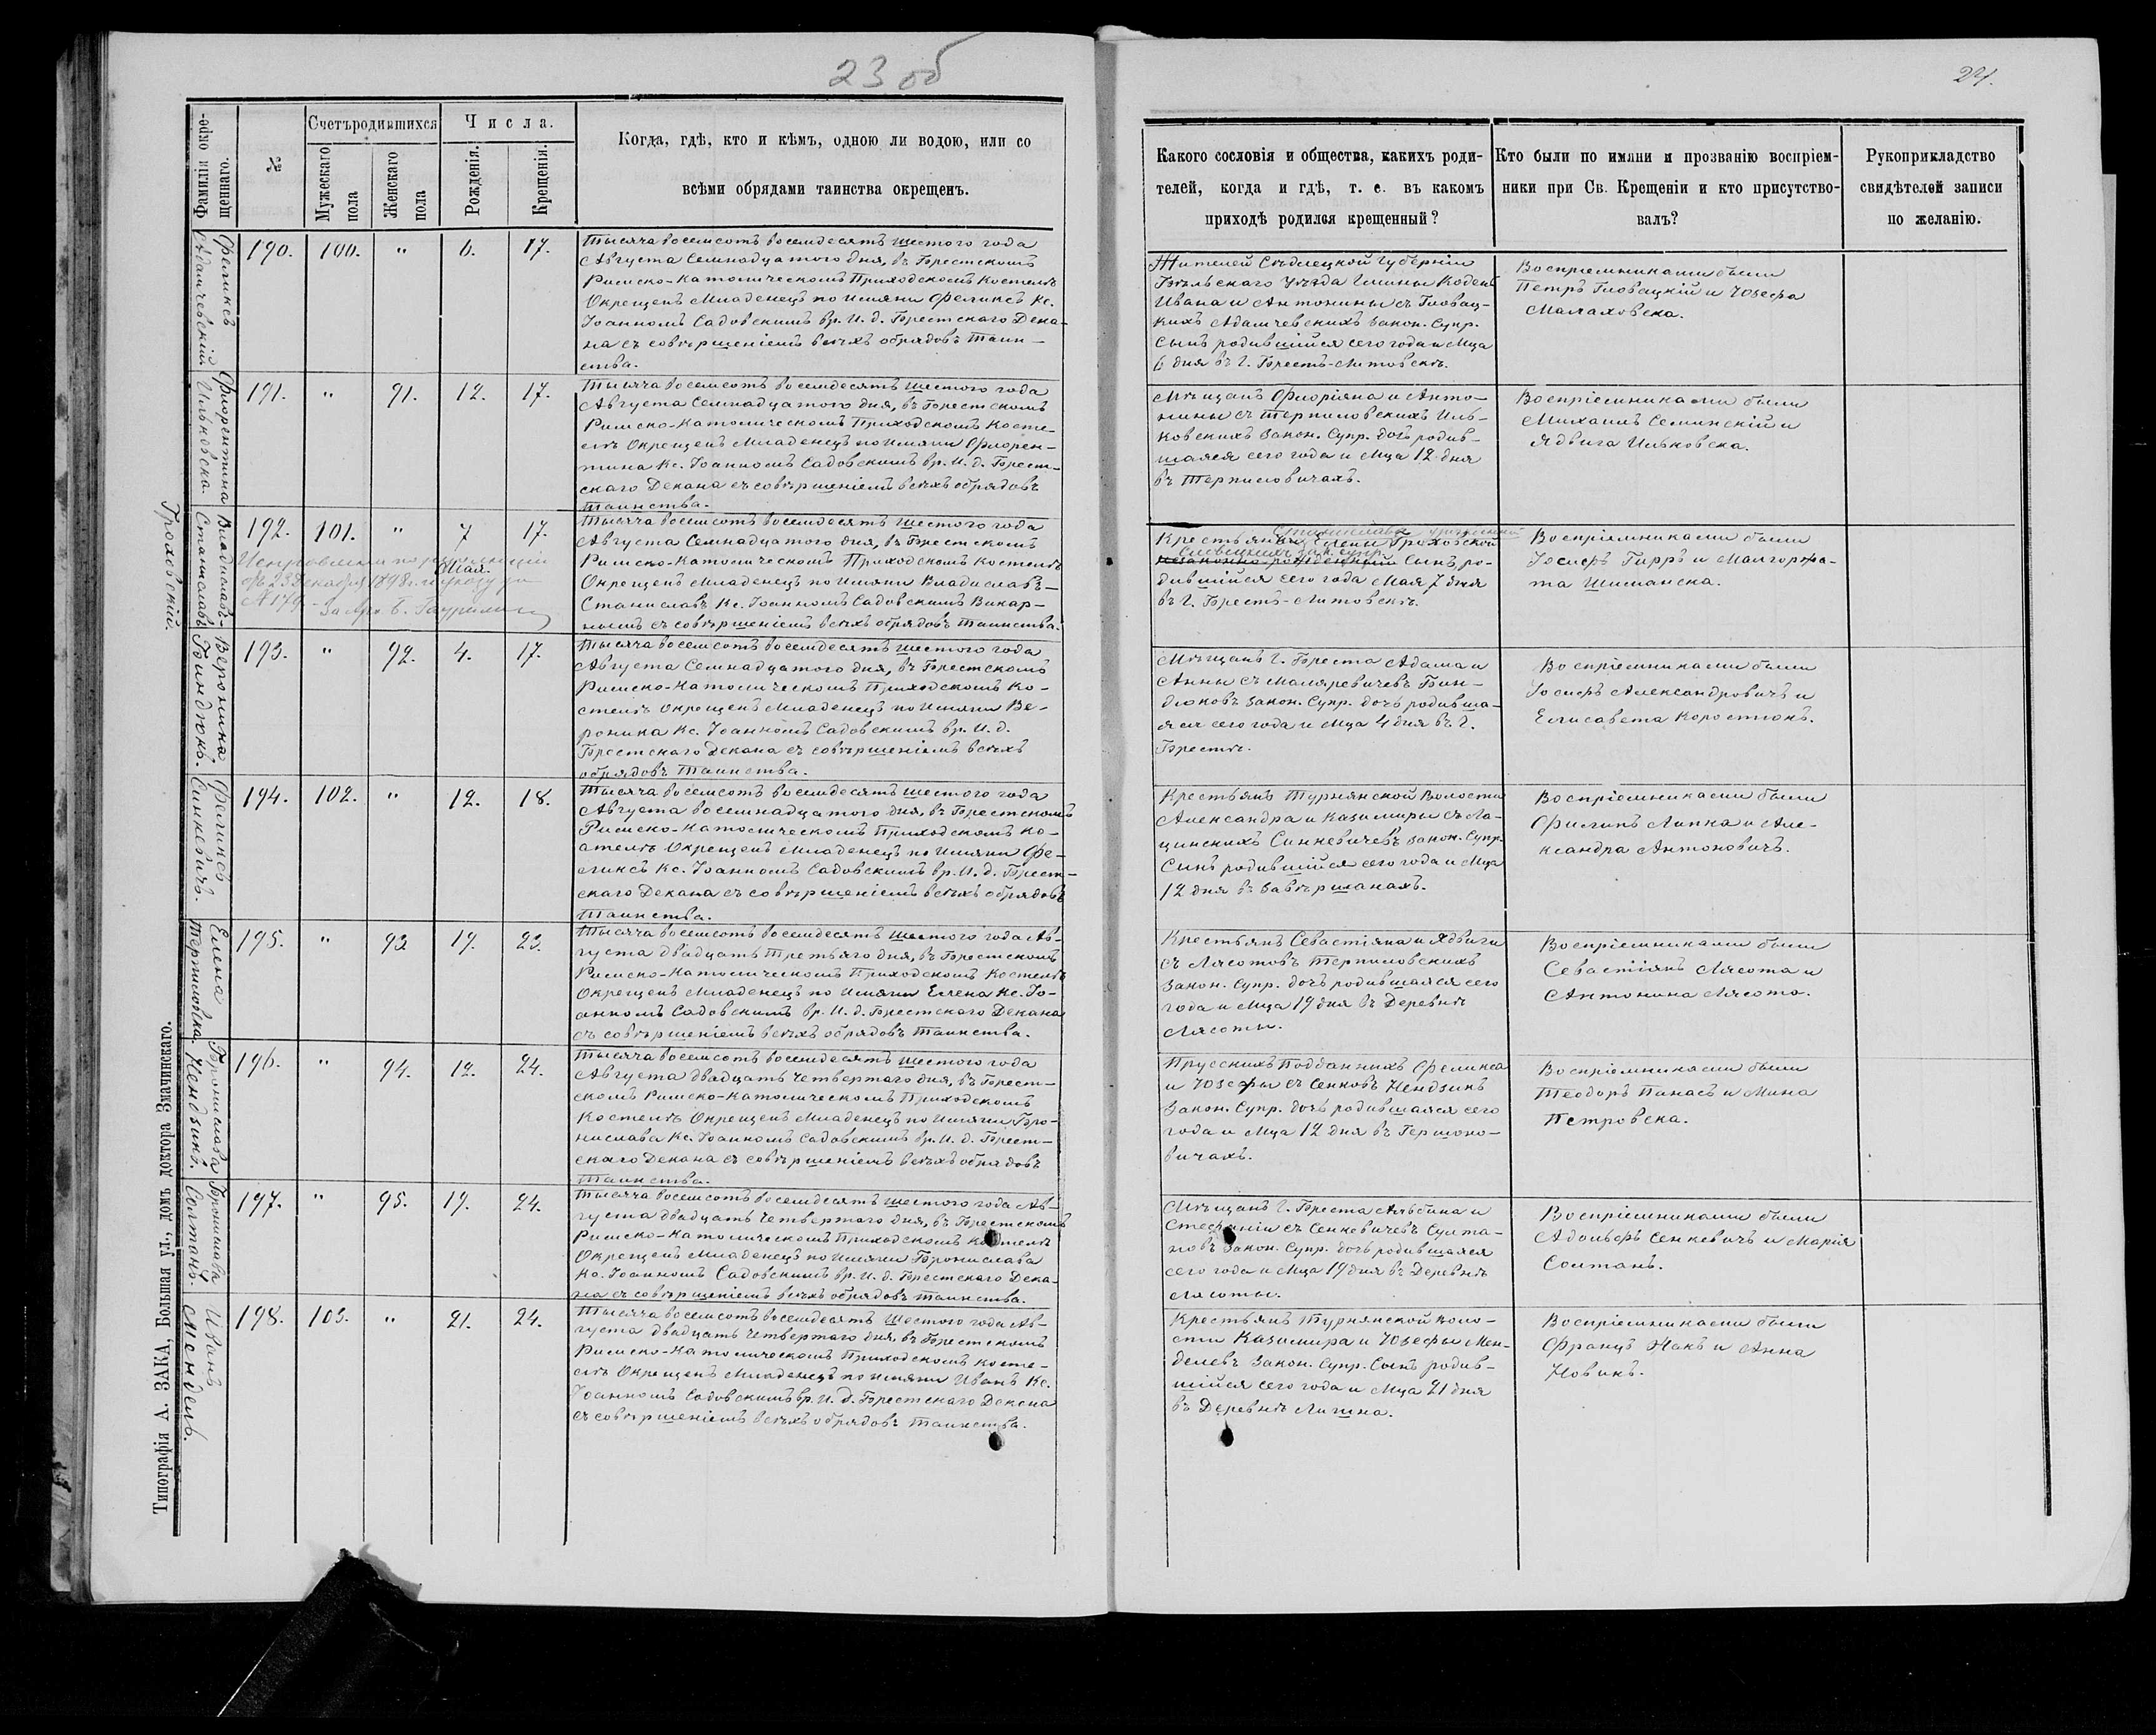 23 об
24.
Фамилія окре-
щеннаго.
№
Счетъ родившихся
Мужескаго
пола
Женскаго
пола
Числа.
Рожденія.
Крещенія.
Когда, гдѣ, кто и кѣмъ, одною ли водою, или со
всѣми обрядами таинства окрещенъ.
Какого сословія и общества, какихъ роди-
телей, когда и гдѣ, т. е. въ какомъ
приходѣ родился крещенный?
Кто были по имяни и прозванію воспріем-
ники при Св. Крещеніи и кто присутство-
валъ?
Рукоприкладство
свидѣтелей записи
по желанію.
Феликсъ
Адамчевскій
190. 100. " 6. 17.
Тысяча восемсотъ восемдесятъ шестого года
Августа Семнадцатого дня, въ Брестскомъ
Римско-Католическомъ Приходскомъ Костелѣ
Окрещенъ Младенецъ по Имяни Феликсъ Кс.
Іоанномъ Садовскимъ вр. И. д. Брестскаго Дека-
на съ совѣршеніемъ всѣхъ обрядовъ Таин-
ства.
Жителей Сѣдлецкой Губерніи
Бѣльскаго Уѣзда Гмины Кодень
Ивана и Антонины съ Гловац-
кихъ Адамчевскихъ Закон. Супр.
Сынъ родившійся сего года и Мца
6 дня въ Г. Брестъ-Литовскѣ.
Воспріемниками были
Петръ Гловацкій и Юзефа
Малаховска.
Флорентина
Ильковска.
191. " 91. 12. 17.
Тысяча восемсотъ восемдесятъ шестого года
Августа Семнадцатого дня, въ Брестскомъ
Римско-Католическомъ Приходскомъ Косте-
лѣ Окрещенъ Младенецъ по Имяни Флорен-
тина Кс. Іоанномъ Садовскимъ вр. И. д. Брест-
скаго Декана съ совѣршеніемъ всѣхъ обрядовъ
Таинства.
Мѣщанъ Флоріяна и Анто-
нины съ Терпиловскихъ Иль-
ковскихъ Закон. Супр. дочь родив-
шаяся сего года и Мца 12 дня
въ Терпиловичахъ.
Воспріемниками были
Михаилъ Семинскій и
Ядвига Ильковска.
Владиславъ-
Станиславъ
Гроховскій.
192. 101. " 7 17.
Мая.
Исправлены по резолюціи
отъ 23 Декабря 1898 г. и указу за
№ 179
Тысяча восемсотъ восемдесятъ шестого года
Августа Семнадцатого дня, въ Брестскомъ
Римско-Католическомъ Приходскомъ Костелѣ
Окрещенъ Младенецъ по Имяни Владиславъ-
Станиславъ Кс. Іоанномъ Садовскимъ Викар-
нымъ съ совѣршеніемъ всѣхъ обрядовъ Таинства.
Крестьянки Елены Гроховской
незаконно-рожденный Сынъ ро-
дившійся сего года Мая 7 дня
въ Г. Брестъ-Литовскѣ.
Воспріемниками были
Іосифъ Гирръ и Малгоржа-
та Шиманска.
Вероника
Биндюкъ.
193. " 92. 4. 17.
Тысяча восемсотъ восемдесятъ шестого года
Августа Семнадцатого дня, въ Брестскомъ
Римско-Католическомъ Приходскомъ Ко-
стелѣ Окрещенъ Младенецъ по Имяни Ве-
роника Кс. Іоанномъ Садовскимъ вр. И. д.
Брестскаго Декана съ совѣршеніемъ всѣхъ
обрядовъ Таинства.
Мѣщанъ Г. Бреста Адама и
Анны съ Маляревичевъ Бин-
дюковъ Закон. Супр. дочь родивша-
яся сего года и Мца 4 дня въ Г.
Брестѣ.
Воспріемниками были
Іосифъ Александровичъ и
Елисавета Коростюкъ.
Феликсъ
Синкевичъ.
194. 102. " 12. 18.
Тысяча восемсотъ восемдесятъ шестого года
Августа восемнадцатого дня, въ Брестскомъ
Римско-Католическомъ Приходскомъ Ко-
стелѣ Окрещенъ Младенецъ по Имяни Фе-
ликсъ Кс. Іоанномъ Садовскимъ вр. И. д. Брест-
скаго Декана съ совѣршеніемъ всѣхъ обрядовъ
Таинства.
Крестьянъ Турнянской Волости
Александра и Казимиры съ Ла-
щинскихъ Синкевичевъ Закон. Супр.
Сынъ родившійся сего года и Мца
12 дня въ Завѣршанахъ.
Воспріемниками были
Филипъ Липка и Але-
ксандра Антоновичъ.
Елена
Терпиловска.
195. " 93 19. 23.
Тысяча восемсотъ восемдесятъ шестого года Ав-
густа двадцать Третьяго дня, въ Брестскомъ
Римско-Католическомъ Приходскомъ Костелѣ
Окрещенъ Младенецъ по Имяни Елена Кс. Іо-
анномъ Садовскимъ вр. И. д. Брестскаго Декана
съ совѣршеніемъ всѣхъ обрядовъ Таинства.
Крестьянъ Севастіяна и Ядвиги
съ Лясотовъ Терпиловскихъ
Закон. Супр. дочь родившаяся сего
года и Мца 19 дня въ Деревнѣ
Лясоты.
Воспріемниками были
Севастіянъ Лясота и
Антонина Лясота.
Бронислава
Нендзикъ.
196. " 94. 12. 24.
Тысяча восемсотъ восемдесятъ шестого года
Августа двадцать Четвертаго дня, въ Брест-
скомъ Римско-Католическомъ Приходскомъ
Костелѣ Окрещенъ Младенецъ по Имяни Бро-
нислава Кс. Іоанномъ Садовскимъ вр. И. д. Брест-
скаго Декана съ совѣршеніемъ всѣхъ обрядовъ
Таинства.
Прусскихъ Подданныхъ Феликса
и Юзефы съ Сенковъ Нендзикъ
Закон. Супр. дочь родившаяся сего
года и Мца 12 дня въ Гершоно-
вичахъ.
Воспріемниками были
Теодоръ Панасъ и Мина
Петровска.
Бронислава
Солтанъ.
197. " 95. 19. 24.
Тысяча восемсотъ восемдесятъ шестого года Ав-
густа двадцать Четвертаго дня, въ Брестскомъ
Римско-Католическомъ Приходскомъ Костелѣ
Окрещенъ Младенецъ по Имяни Бронислава
Кс. Іоанномъ Садовскимъ вр. И. д. Брестскаго Дека-
на съ совѣршеніемъ всѣхъ обрядовъ Таинства.
Мѣщанъ Г. Бреста Альбина и
Стефаніи съ Сенкевичевъ Султа-
новъ Закон. Супр. дочь родившаяся
сего года и Мца 19 дня въ Деревнѣ
Лясоты.
Воспріемниками были
Адольфъ Сенкевичъ и Марія
Солтанъ.
Иванъ
Мендель.
198. 103. " 21. 24.
Тысяча восемсотъ восемдесятъ шестого года Ав-
густа двадцать Четвертаго дня, въ Брестскомъ
Римско-Католическомъ Приходскомъ Косте-
лѣ Окрещенъ Младенецъ по Имяни Иванъ Кс.
Іоанномъ Садовскимъ вр. И. д. Брестскаго Декана
съ совѣршеніемъ всѣхъ обрядовъ Таинства.
Крестьянъ Турнянской Воло-
сти Казимира и Юзефы Мен-
делевъ Закон. Супр. Сынъ родив-
шійся сего года и Мца 21 дня
въ Деревнѣ Личина.
Воспріемниками были
Францъ Накъ и Анна
Новикъ.
Типографія А. ЗАКА, Большая ул., домъ доктора Змачинскаго.